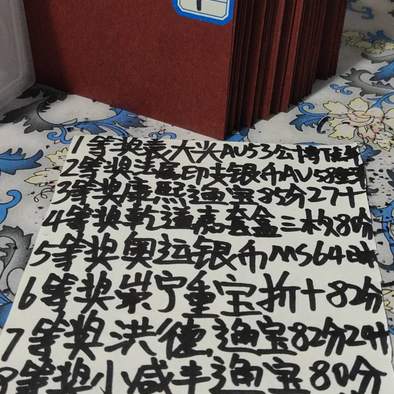 1等奖袁大头AU53公博
2等奖印支银币AU58
3等奖康熙通宝85分27+
4等奖乾隆套盒三枚80分
5等奖奥运银币MS64
6等奖崇宁重宝折十82分
7等奖洪德通宝82分24+
8等奖小咸丰通宝80分